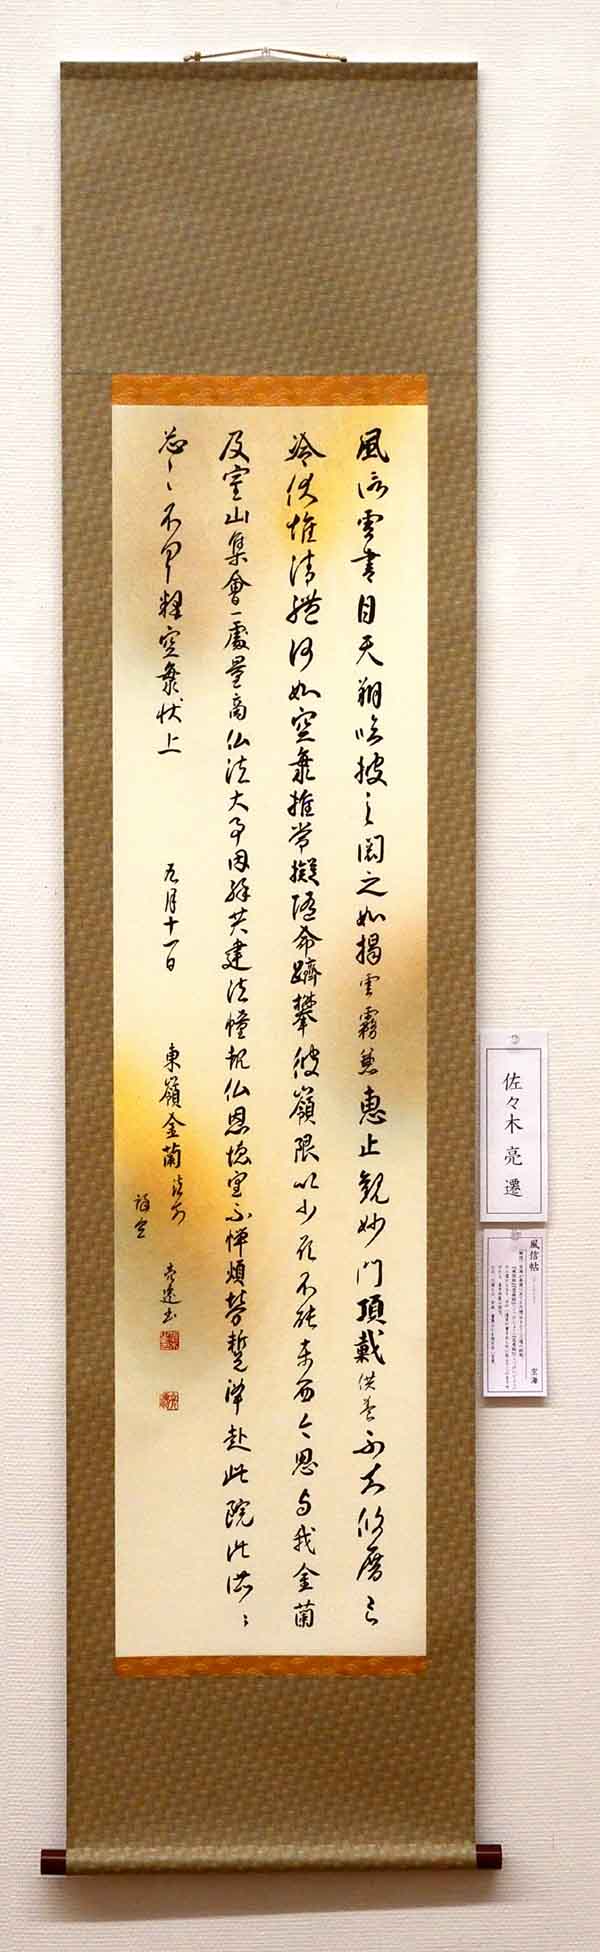 風信雲書自天翔臨披之閲之如揭雲霧兼惠止観妙門頂戴供養不知攸厝已
冷伏惟法體何如空海推常擬隨命躋攀彼嶺限以少願不能東西今思与我金蘭
及室山集會一處量商仏法大事因縁共建法幢報仏恩徳望不憚煩勞蹔降赴此院此所望々々
忩々不具釋空海状上 九月十一日 東嶺金蘭法前 亮遷書
謹空
佐々木 亮遷
風信帖
空海